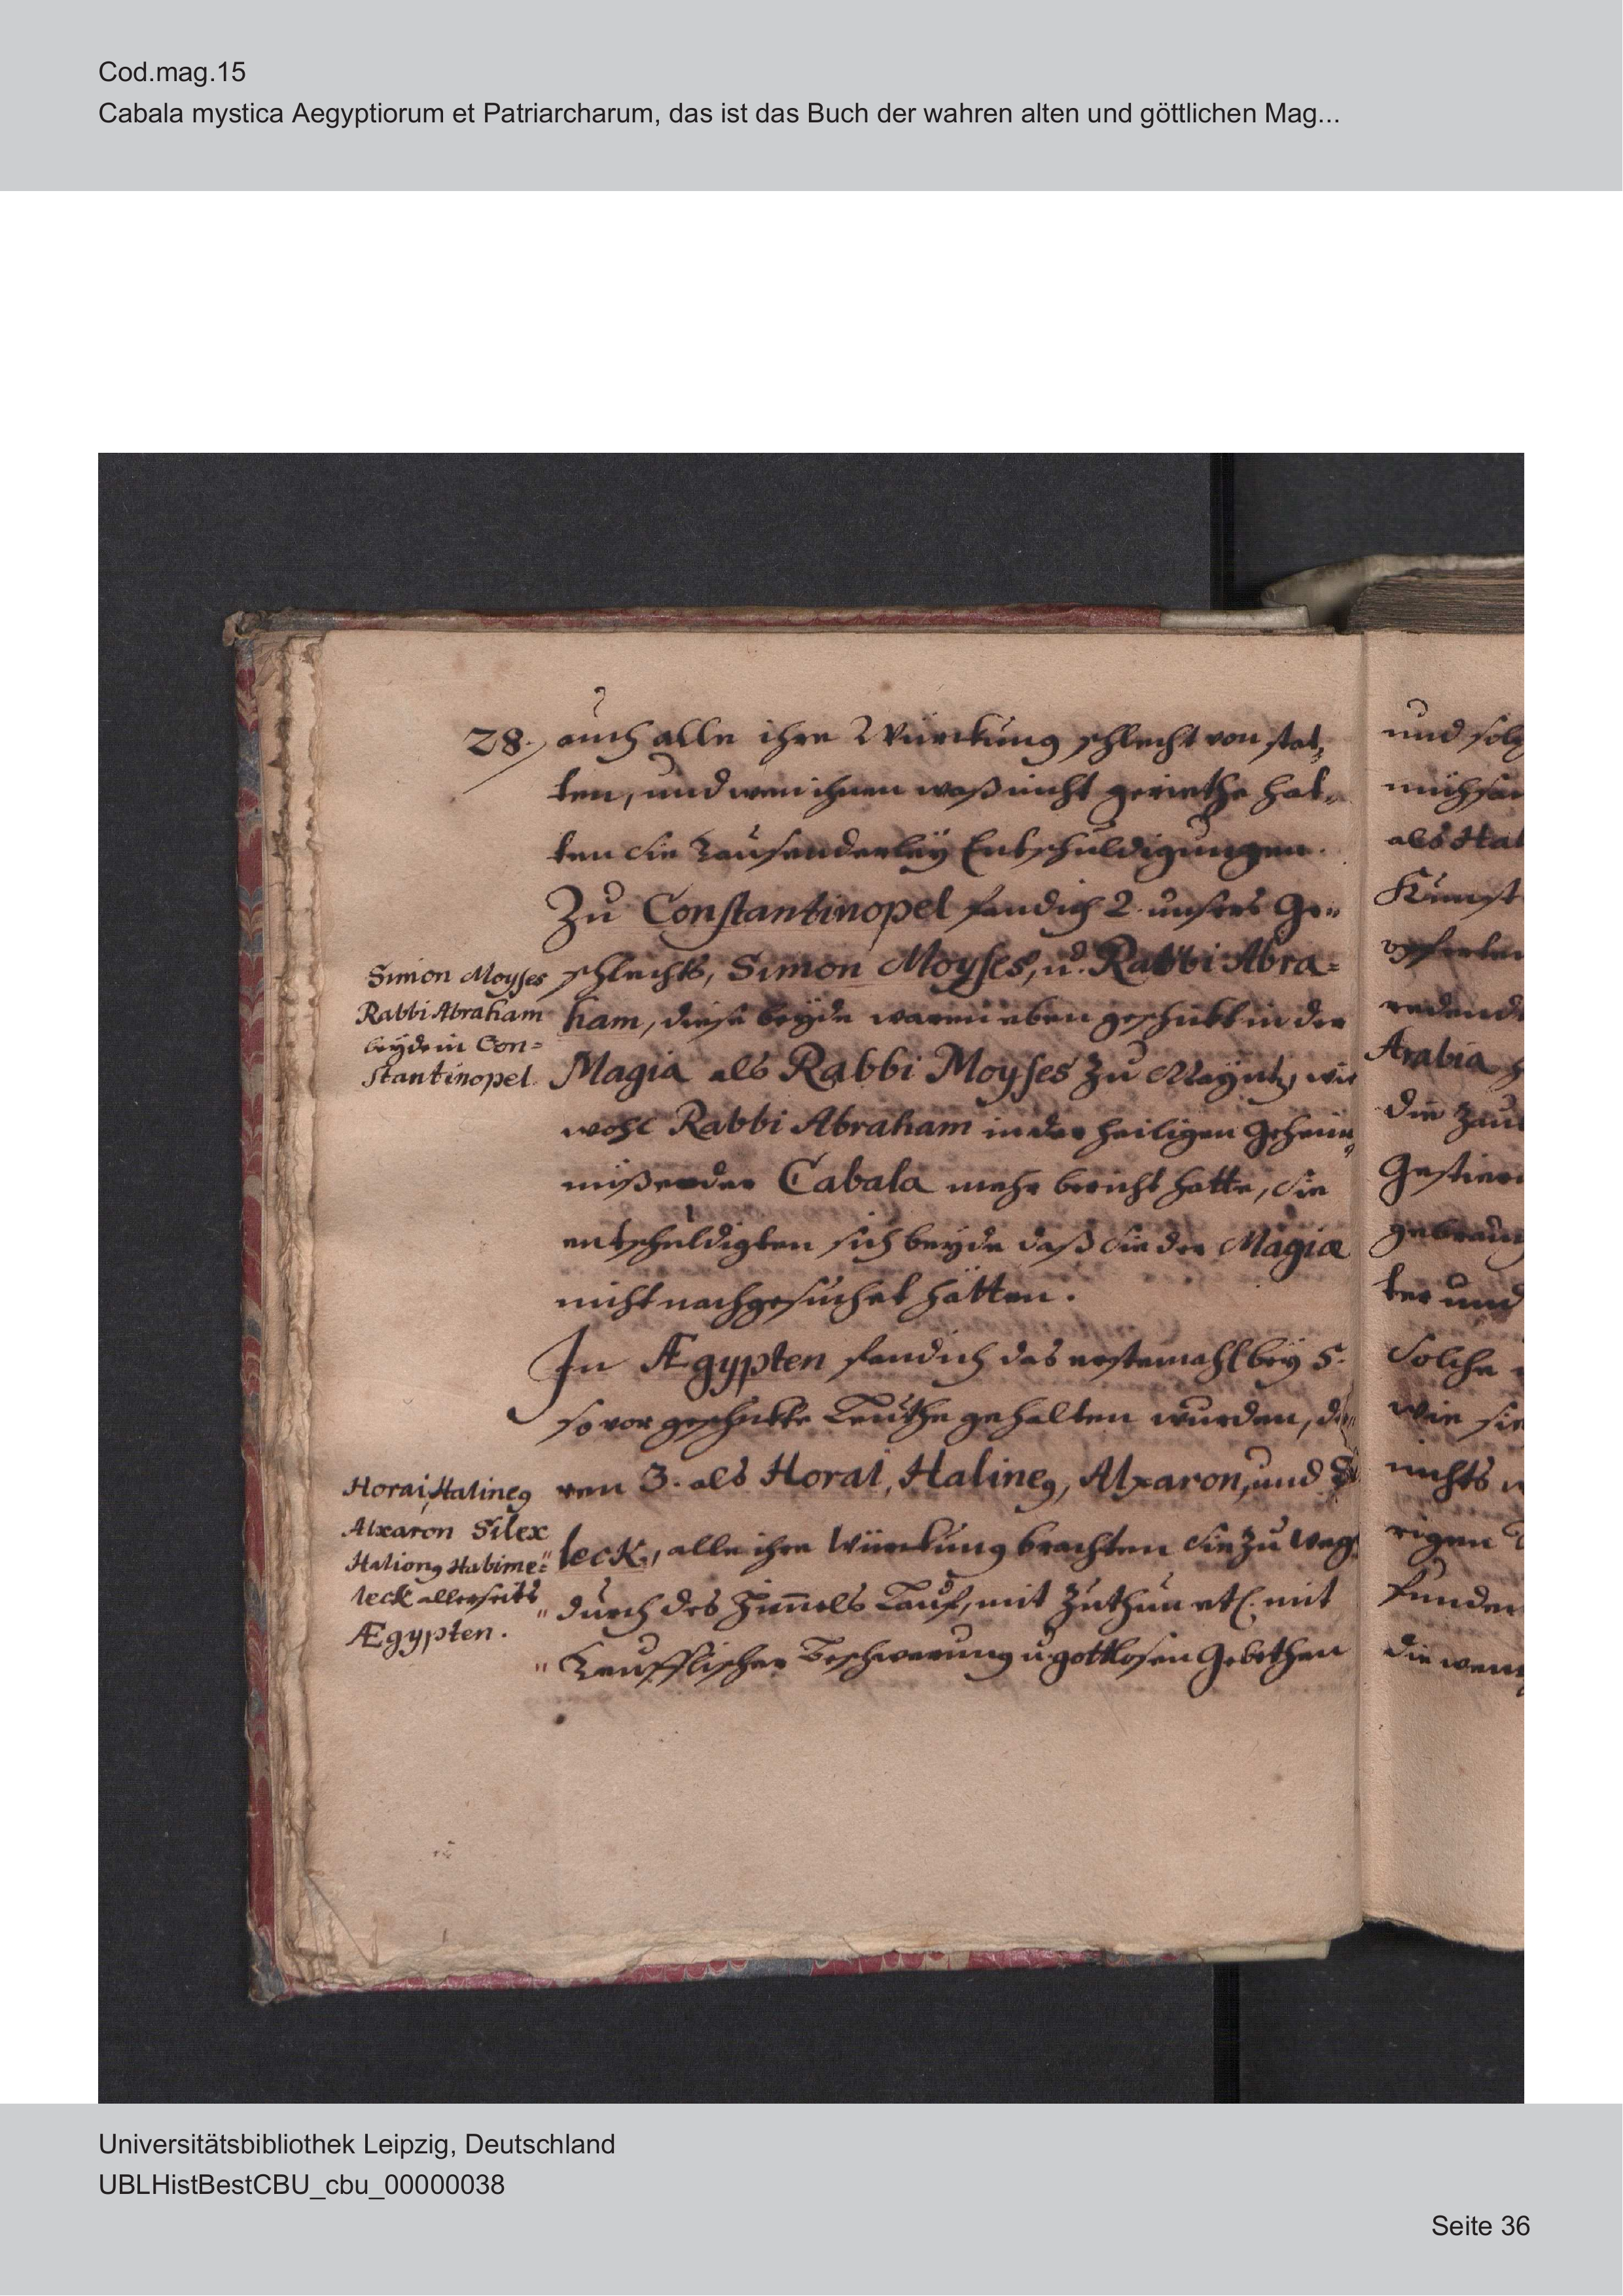 Cod.mag.15
Cabala mystica Aegyptiorum et Patriarcharum, das ist das Buch der wahren alten und göttlichen Mag...
28. auch alle ihre Würckung schlecht von stat,
ten, und wen ihnen waß nicht geriethe hat„
ten sie Tausenderleÿ Entschuldigungen.
Zu Constantinopel fand ich 2 unsers Ge„
schlechts, Simon Moyses, u. Rabbi Abra=
ham, diese beÿde waren eben geschickt in der
Magia als Rabbi Moyses zu Maÿntz, wie
wohl Rabbi Abraham in der heiligen Geheim„
nißen der Cabala mehr bericht hatte, sie
entschuldigten sich beÿde daß sie der Magia
nicht nachgesuchet hätten.
Simon Moyses
Rabbi Abraham
beÿde in Con=
stantinopel.
In Ægypten fand ich das erstemahl beÿ 5.
so vor geschickte Leuthe gehalten wurden, de„
ren 3. als Horai, Halineg, Alxaron, und
leck, alle ihre Würckung brachten sie zu weg
„ durch des Himels Lauf, mit Zuthun etl. mit
„ Teufflischer Beschwerung u. gottlosen Gebethen
Horai, Halineg
Alxaron Silex
Haliong Habime=
leck allerseits
Ægypten.
und solg
mühsam
als Hal
Kunst
opferten
redende
Arabia
die Zau
Gestirn
gebrauch
ter und
solche
wie sie
nichts
rigen
funden
die wen
Universitätsbibliothek Leipzig, Deutschland
UBLHistBestCBU_cbu_00000038
Seite 36